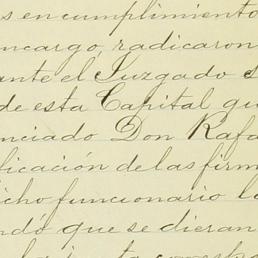 s en cumplimiento
ncargo, radicaron
ante el Juzgado
de esta Capital qu
enciado Don Rafa
licación de las firm
icho funcionario l
ndó que se dieran